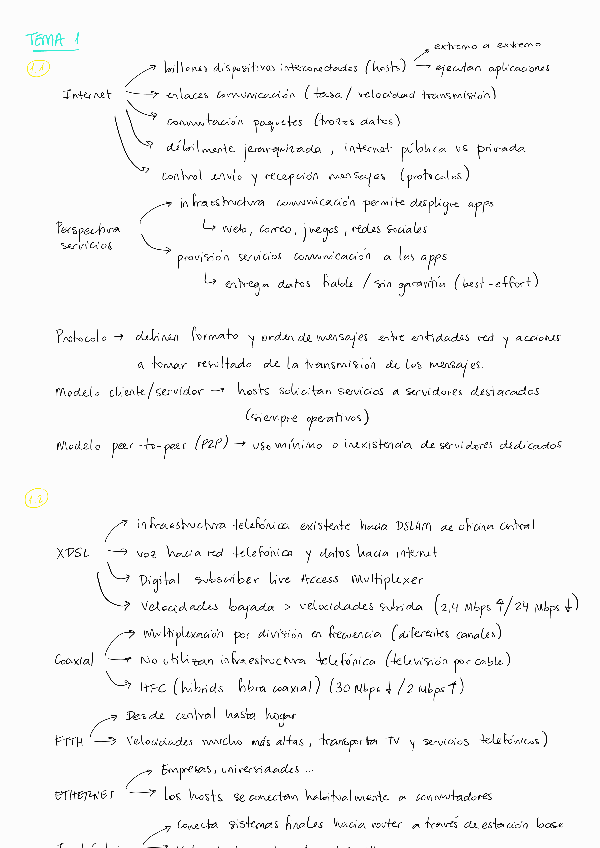 TEMA 1
1.1
extremo a extremo
billones dispositivos interconectados (hosts) → ejecutan aplicaciones
Internet → enlaces comunicación (tasa / velocidad transmisión)
conmutación paquetes (trozos datos)
débilmente jerarquizada, internet pública vs privada
control envío y recepción mensajes (protocolos)
infraestructura comunicación permite despligue apps
Perspectiva servicios
↳ web, correo, juegos, redes sociales
provisión servicios comunicación a las apps
↳ entrega datos fiable / sin garantía (best-effort)
Protocolo → definen formato y orden de mensajes entre entidades red y acciones
a tomar resultado de la transmisión de los mensajes.
Modelo cliente/servidor → hosts solicitan servicios a servidores destacados
(siempre operativos)
Modelo peer-to-peer (P2P) → uso mínimo o inexistencia de servidores dedicados
infraestructura telefónica existente hacia DSLAM de oficina central
XDSL → voz hacia red telefónica y datos hacia internet
Digital subscriber line Access Multiplexer
Velocidades bajada > velocidades subida (2,4 Mbps ↑/24 Mbps ↓)
Multiplexación por división en frecuencia (diferentes canales)
Coaxial → No utilizan infraestructura telefónica (televisión por cable)
HFC (hibrids fibra coaxial) (30 Mbps ↓ / 2 Mbps ↑)
Desde central hasta hogar
FTTH → Velocidades mucho más altas, transporta TV y servicios telefónicos)
Empresas, universidades ...
ETHERNET → Los hosts se conectan habitualmente a conmutadores
Conecta sistemas finales hacia router a través de estación base